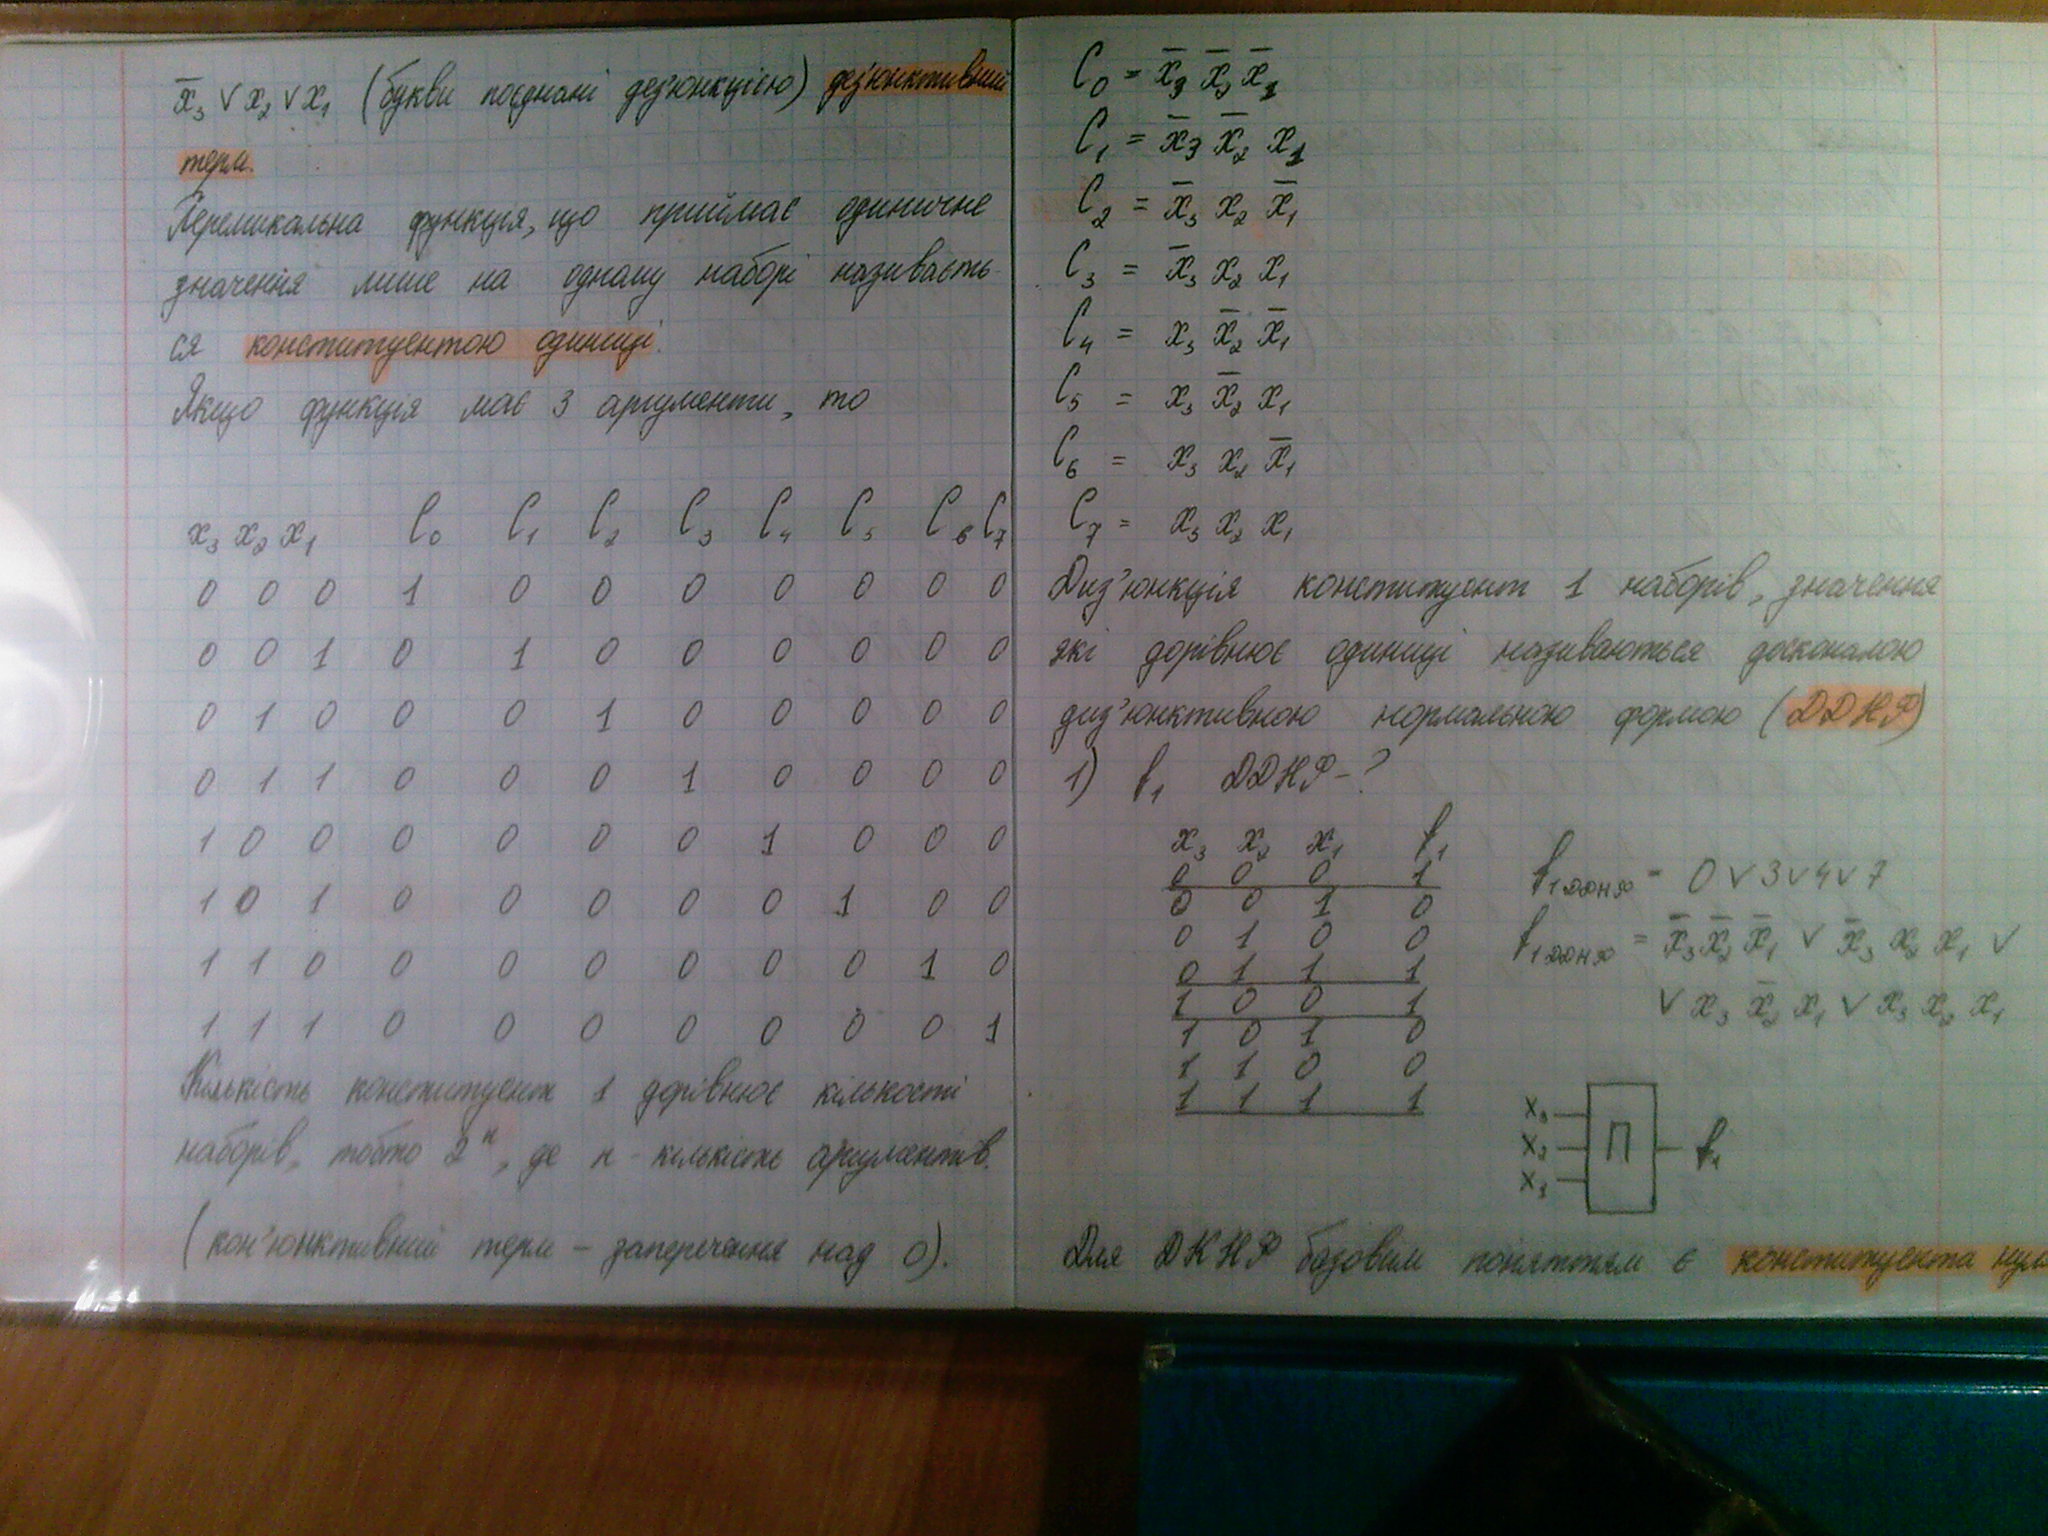 x̅₃ ∨ x₂ ∨ x₁ (букви поєднані дез'юнкцією) дез'юнктивний
терм.
Перемикальна функція, що приймає одиничне
значення лише на одному наборі називаєть-
ся конституентою одиниці.
Якщо функція має 3 аргументи, то
x₃ x₂ x₁ C₀ C₁ C₂ C₃ C₄ C₅ C₆ C₇
0 0 0 1 0 0 0 0 0 0 0
0 0 1 0 1 0 0 0 0 0 0
0 1 0 0 0 1 0 0 0 0 0
0 1 1 0 0 0 1 0 0 0 0
1 0 0 0 0 0 0 1 0 0 0
1 0 1 0 0 0 0 0 1 0 0
1 1 0 0 0 0 0 0 0 1 0
1 1 1 0 0 0 0 0 0 0 1
Кількість конституент 1 дорівнює кількості
наборів, тобто 2ⁿ, де n - кількість аргументів.
(кон'юнктивний терм - заперечення над 0).
C₀ = x̅₃ x̅₂ x̅₁
C₁ = x̅₃ x̅₂ x₁
C₂ = x̅₃ x₂ x̅₁
C₃ = x̅₃ x₂ x₁
C₄ = x₃ x̅₂ x̅₁
C₅ = x₃ x̅₂ x₁
C₆ = x₃ x₂ x̅₁
C₇ = x₃ x₂ x₁
Диз'юнкція конституент 1 наборів, значення
які дорівнює одиниці називаються досконалою
диз'юнктивною нормальною формою (ДДНФ)
1) f₁ ДДНФ - ?
x₃ x₂ x₁ f₁
0 0 0 1
0 0 1 0
0 1 0 0
0 1 1 1
1 0 0 1
1 0 1 0
1 1 0 0
1 1 1 1
f₁ДДНФ = 0 ∨ 3 ∨ 4 ∨ 7
f₁ДДНФ = x̅₃ x̅₂ x̅₁ ∨ x̅₃ x₂ x₁ ∨
∨ x₃ x̅₂ x₁ ∨ x₃ x₂ x₁
П
f₁
Для ДКНФ базовим поняттям є конституента нуля